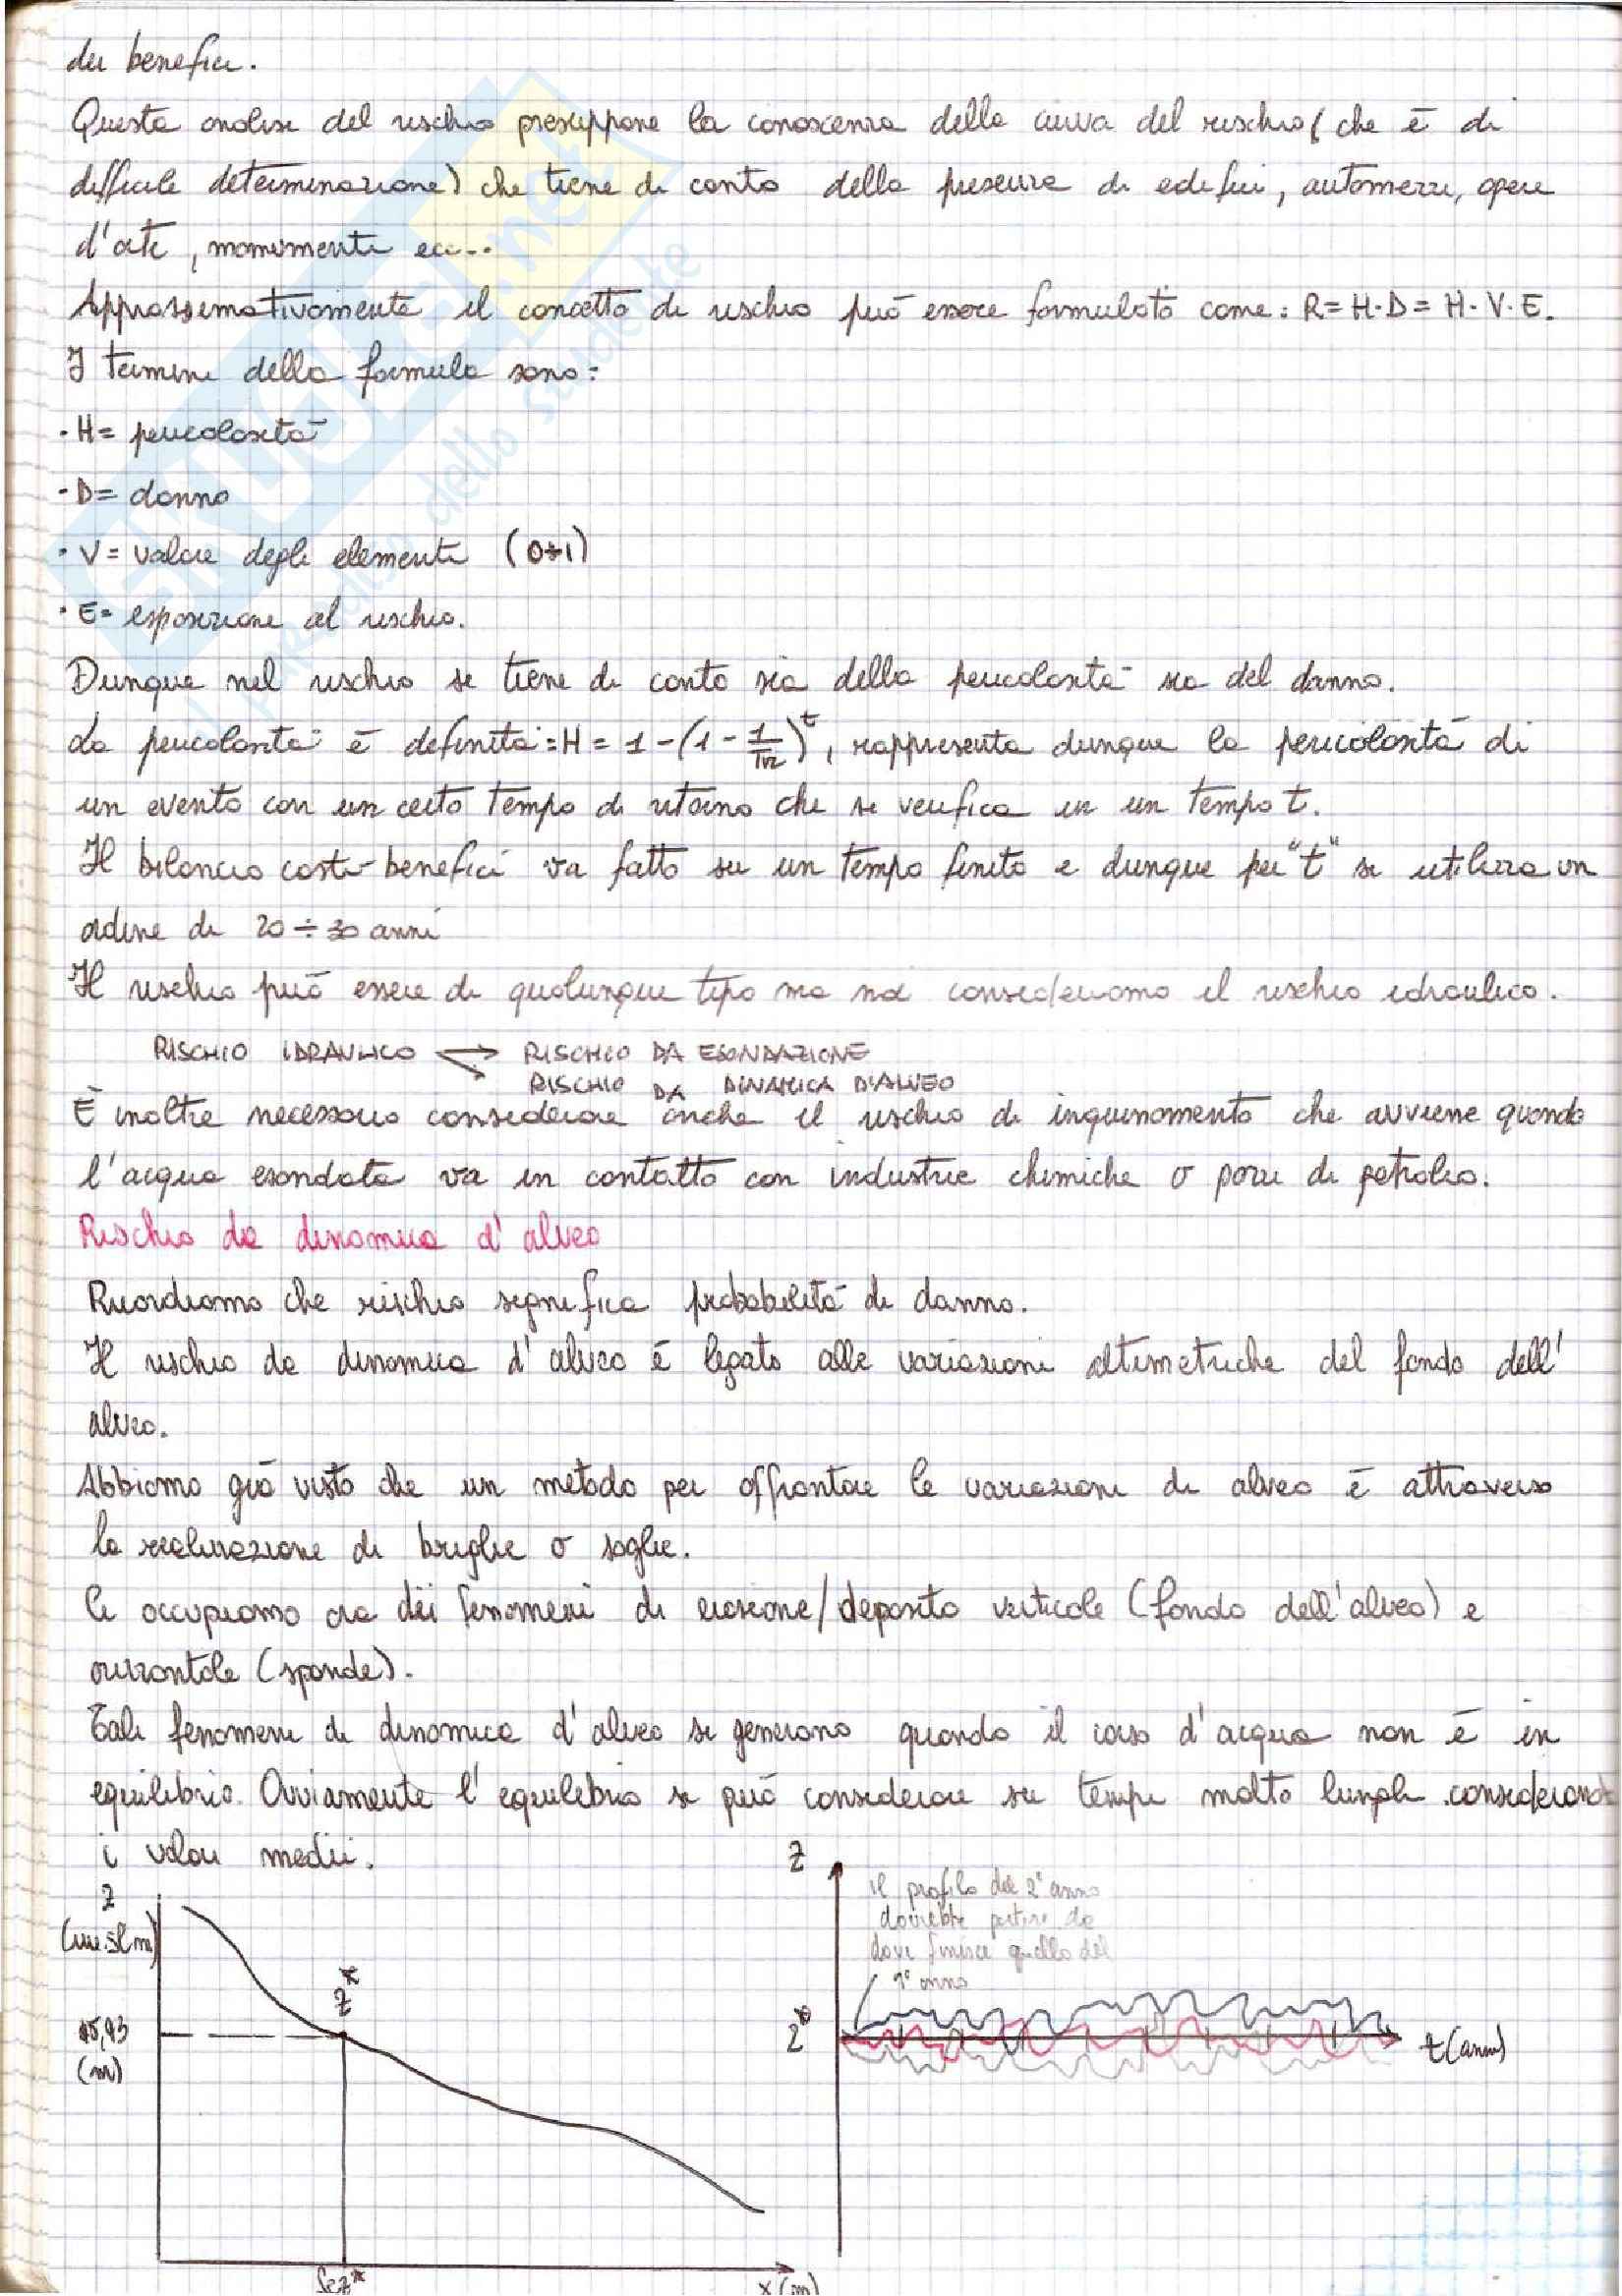 dei benefici.
Questa analisi del rischio presuppone la conoscenza della curva del rischio (che è di
difficile determinazione) che tiene di conto della presenza di edifici, automezzi, opere
d'arte, monumenti ecc...
Approssimativamente il concetto di rischio può essere formulato come: R=H·D=H·V·E.
I termini della formula sono:
·H= pericolosità
·D= danno
·V= valore degli elementi (0÷1)
·E= esposizione al rischio.
Dunque nel rischio si tiene di conto sia della pericolosità sia del danno.
La pericolosità è definita: H = 1-(1-1/Tr)^t, rappresenta dunque la pericolosità di
un evento con un certo tempo di ritorno che si verifica in un tempo t.
Il bilancio costi-benefici va fatto su un tempo finito e dunque per "t" si utilizza un
ordine di 20÷30 anni
Il rischio può essere di qualunque tipo ma noi consideriamo il rischio idraulico.
RISCHIO IDRAULICO RISCHIO DA ESONDAZIONE
RISCHIO DA DINAMICA D'ALVEO
È inoltre necessario considerare anche il rischio di inquinamento che avviene quando
l'acqua esondata va in contatto con industrie chimiche o pozzi di petrolio.
Rischio da dinamica d'alveo
Ricordiamo che rischio significa probabilità di danno.
Il rischio da dinamica d'alveo è legato alle variazioni altimetriche del fondo dell'
alveo.
Abbiamo già visto che un metodo per affrontare le variazioni di alveo è attraverso
la realizzazione di briglie o soglie.
Ci occupiamo ora dei fenomeni di erosione/deposito verticale (fondo dell'alveo) e
orizzontale (sponde).
Tali fenomeni di dinamica d'alveo si generano quando il corso d'acqua non è in
equilibrio. Ovviamente l'equilibrio si può considerare su tempi molto lunghi considerando
i valori medii.
Z
(m.slm)
Z*
45,93
(m)
Sez*
x(m)
Z
il profilo del 2° anno
dovrebbe partire da
dove finisce quello del
1° anno
Z*
t(anni)